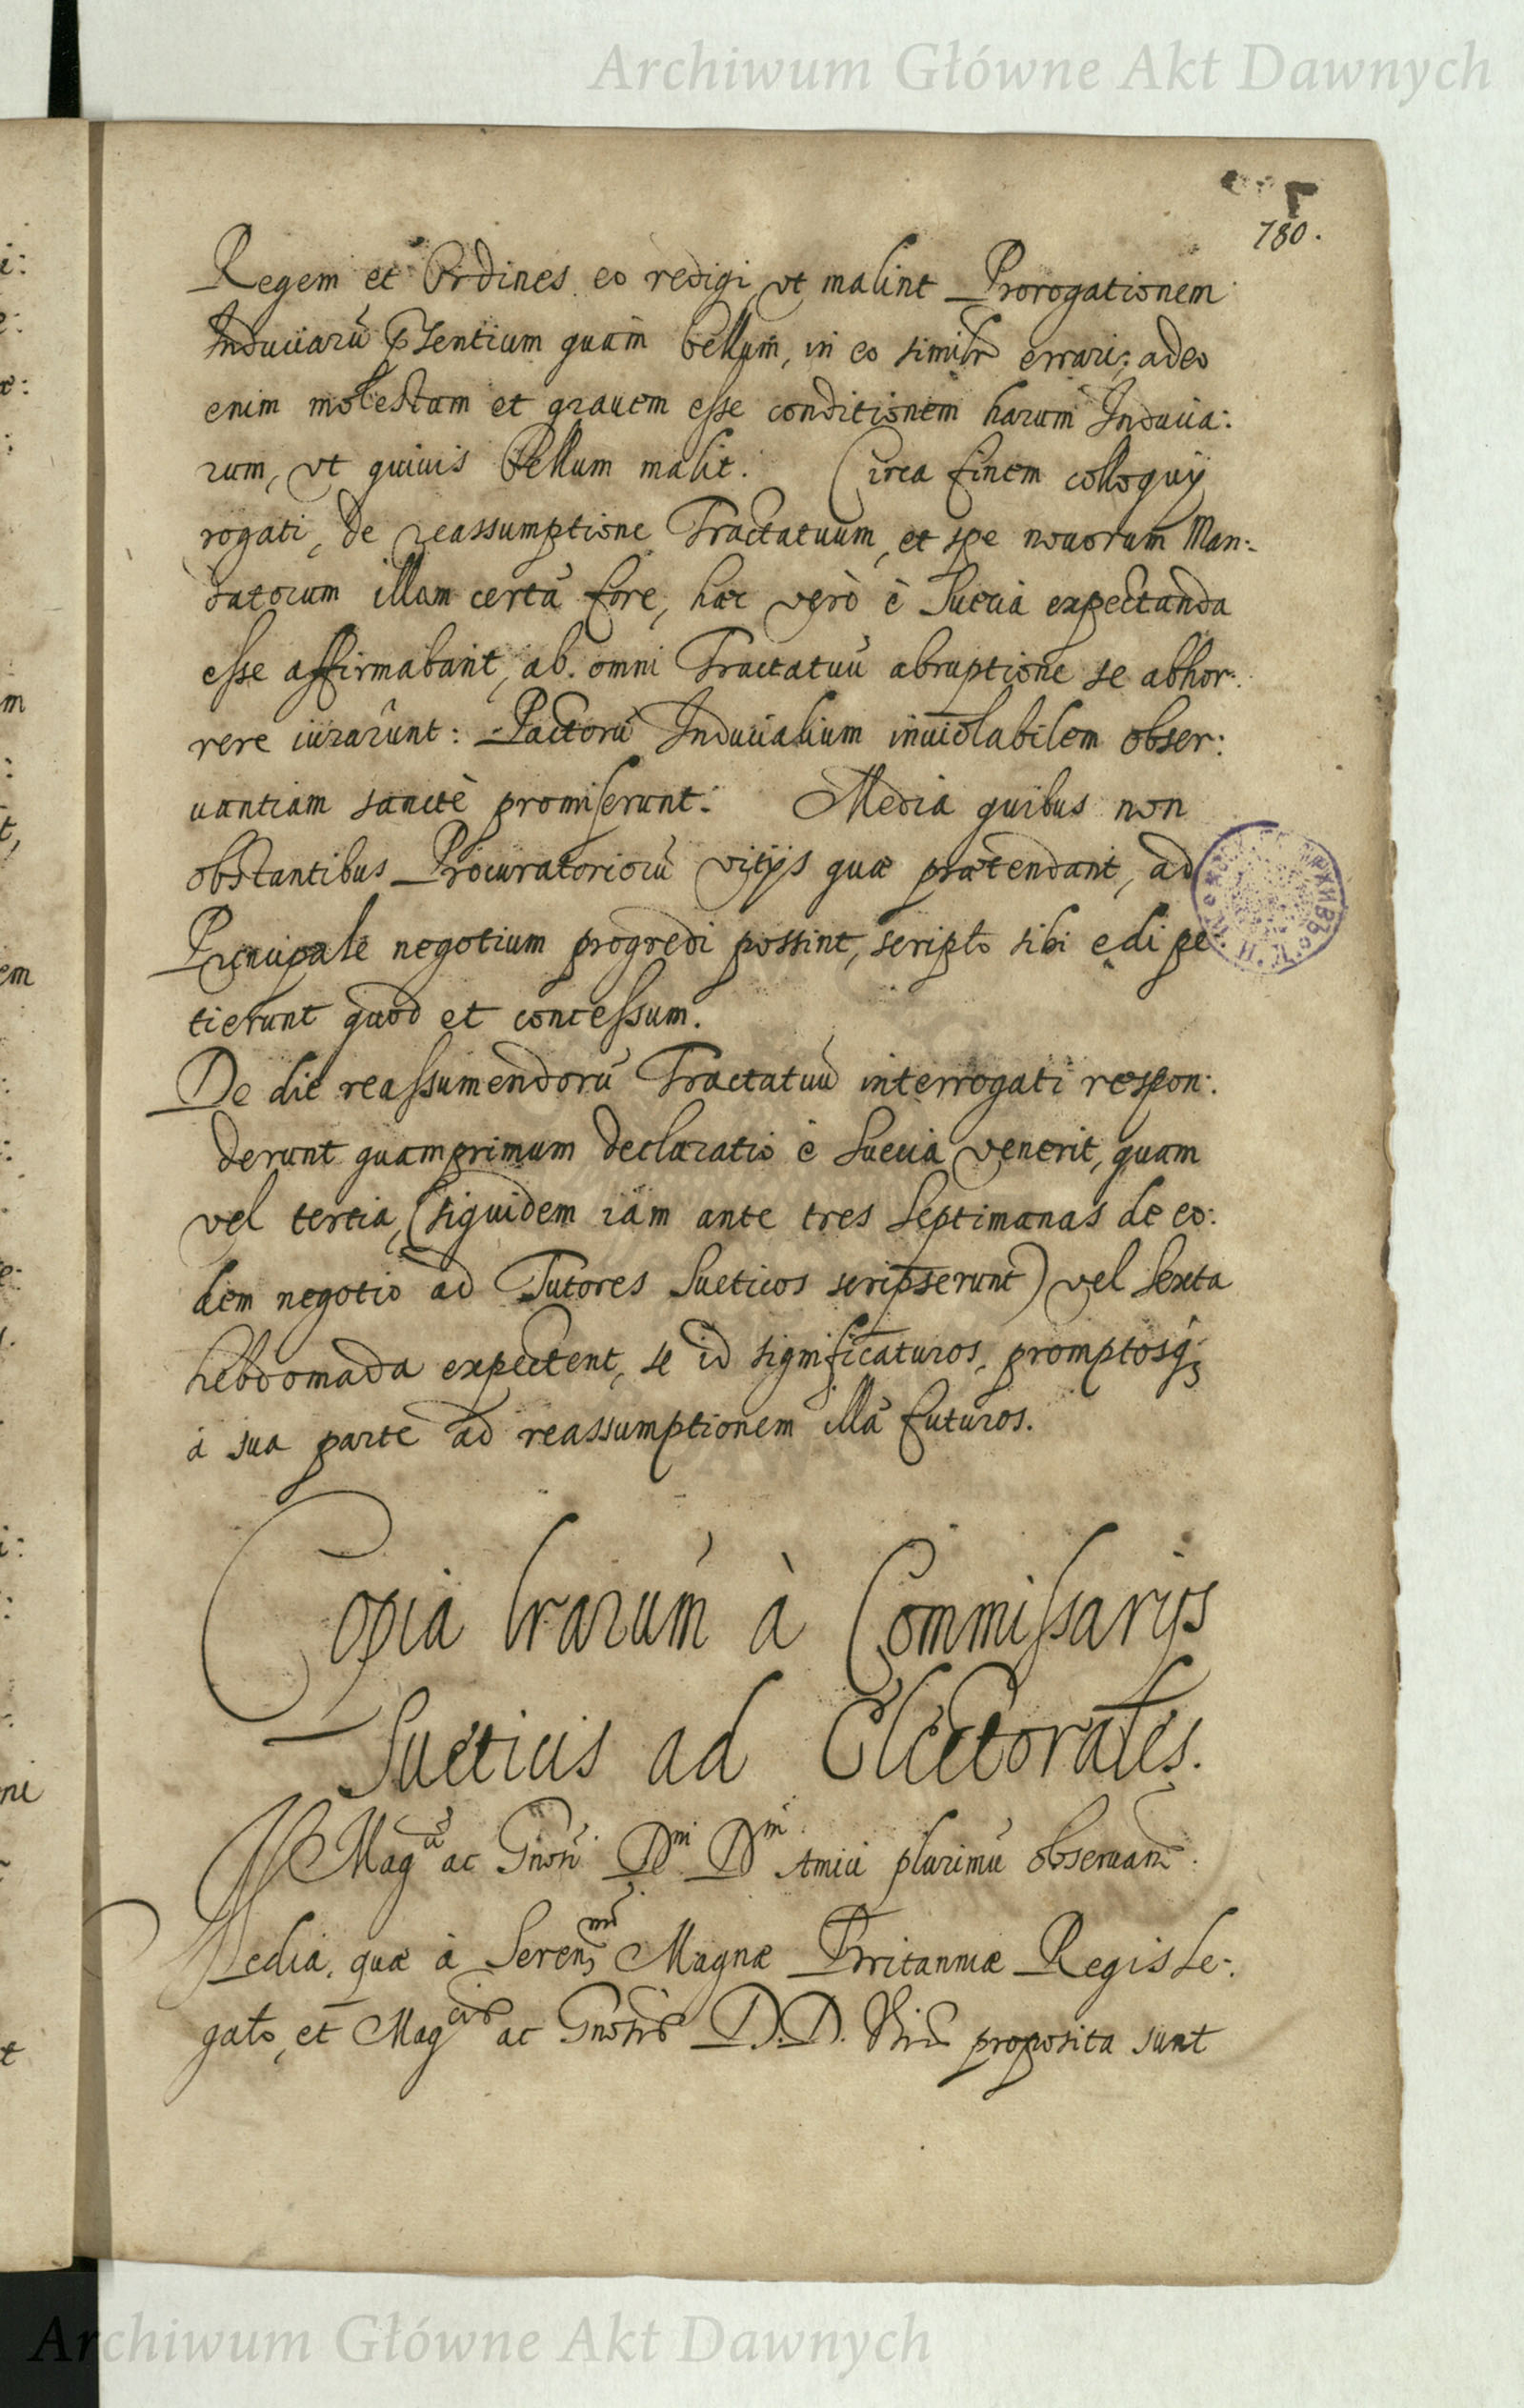 Archiwum Główne Akt Dawnych
780.
Regem et Ordines eo redigi, vt malint Prorogationem
Induciarũ pṡentium quam bellum, in eo simil̃r errari; adeo
enim molestam et grauem esse conditionem harum Inducia:
rum, vt quiuis Bellum malit. Circa finem colloquij
rogati, de reassumptione Tractatuum, et spe nouorum Man:
datorum illam certã fore, hæc verò è Suecia expectanda
esse affirmabant, ab omni Tractatuũ abruptione se abhor:
rere iurarũnt: Pactorũ Inducialium inuiolabilem obser:
uantiam sanctè promiserunt. Media quibus non
obstantibus Procuratoriorũ vitijs quæ prætendant, ad
Principale negotium progredi possint, scripto sibi edi pe:
tierunt quod et concessum.
De die reassumendorũ Tractatuũ interrogati respon:
derunt quamprimum declaratio è Suecia venerit, quam
vel tertia, (siquidem iam ante tres Septimanas de eo:
dem negotio ad Tutores Sueticos scripserunt) vel sexta
hebdomada expectent, se id significaturos, promptosq;
à sua parte ad reassumptionem illã futuros.
Copia lrarum à Commissarijs
Sueticis ad Electorales.
Mag^ci ac Gnosi Dni Dni Amici plurimũ obseruan̄d.
Media, quæ à Seren^mi Magnæ Britanniæ Regis Le:
gato, et Mag^cis ac Gnosis D.D. Vris proposita sunt
Archiwum Główne Akt Dawnych